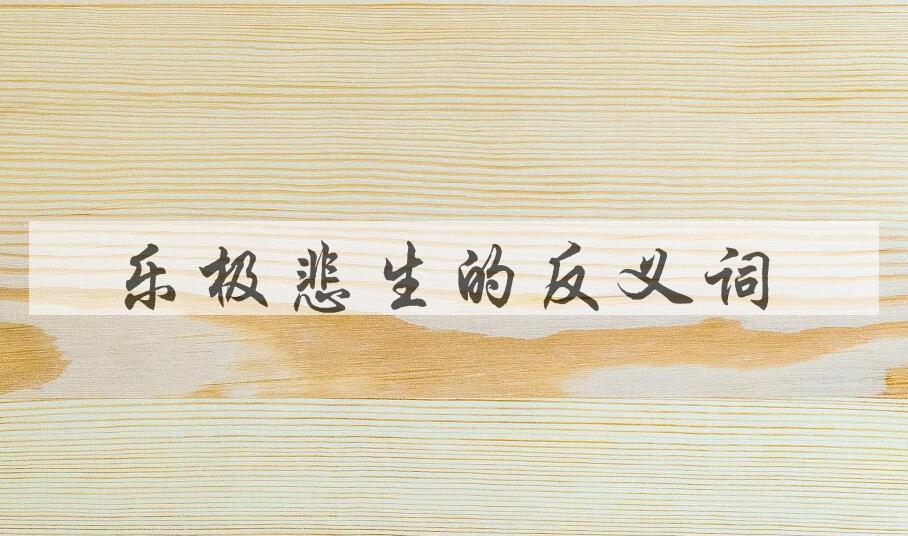 乐极悲生的反义词